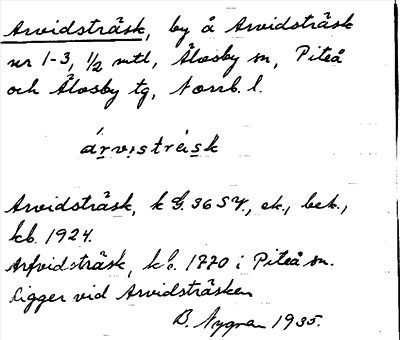 Arvidsträsk, by å Arvidsträsk
nr 1-3, 1/2 mtl, Älvsby sn, Piteå
och Älvsby tg, Norrb. l.
árvıstrẹisk
Arvidsträsk, k G. 36 SY., ek., bek.,
kb. 1924.
Arfvidsträsk, kb. 1770 i Piteå sn.
Ligger vid Arvidsträsken
B. Nygren 1935.